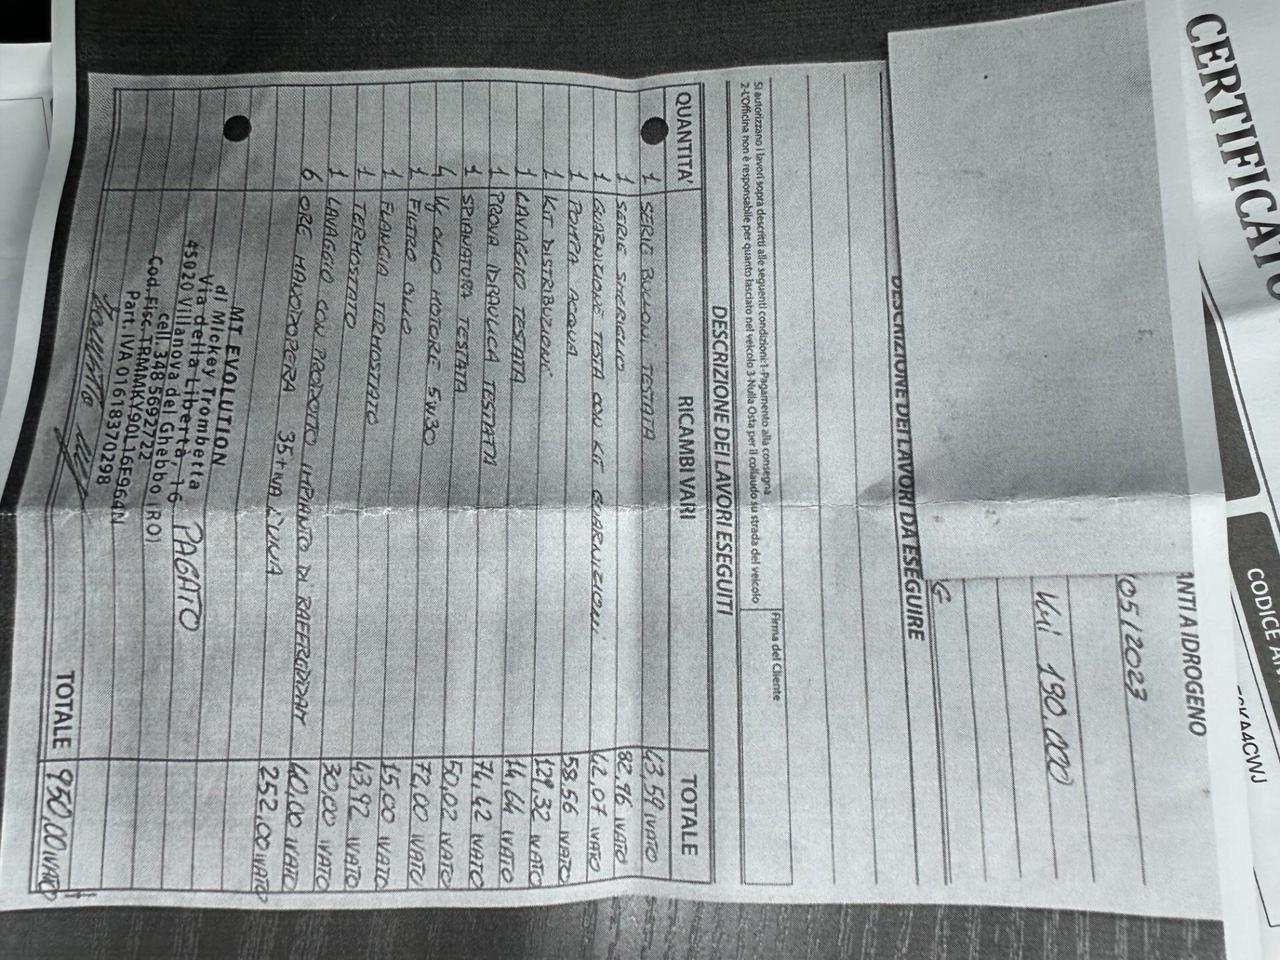 CERTIFICATO
CODICE
ANTI A IDROGENO
05/2023
KM 190.000
DESCRIZIONE DEI LAVORI DA ESEGUIRE
Si autorizzano i lavori sopra descritti alle seguenti condizioni: 1-Pagamento alla consegna
2-L'Officina non è responsabile per quanto lasciato nel veicolo 3-Nulla Osta per il collaudo su strada del veicolo
Firma del Cliente
DESCRIZIONE DEI LAVORI ESEGUITI
QUANTITA' RICAMBI VARI TOTALE
1 SERIE BULLONI TESTATA 43,59 IVATO
1 SERIE SMERIGLIO 82,96 IVATO
1 GUARNIZIONE TESTA CON KIT GUARNIZIONI 42,07 IVATO
1 POMPA ACQUA 58,56 IVATO
1 KIT DISTRIBUZIONE 129,32 IVATO
1 LAVAGGIO TESTATA 14,64 IVATO
1 PROVA IDRAULICA TESTATA 74,42 IVATO
1 SPIANATURA TESTATA 50,02 IVATO
4 Kg OLIO MOTORE 5W30 72,00 IVATO
1 FILTRO OLIO 15,00 IVATO
1 FLANGIA TERMOSTATO 43,92 IVATO
1 TERMOSTATO 30,00 IVATO
1 LAVAGGIO CON PRODOTTO IMPIANTO DI RAFFREDDAM 40,00 IVATO
6 ORE MANODOPERA 35+IVA L'UNA 252,00 IVATO
MT EVOLUTION
di Mickey Trombetta
Via della Libertà, 16
45020 Villanova del Ghebbo (RO)
cell. 348 5692722
Cod. Fisc. TRMMKY90L16E964N
Part. IVA 01618370298
PAGATO
TOTALE 950,00 IVATO